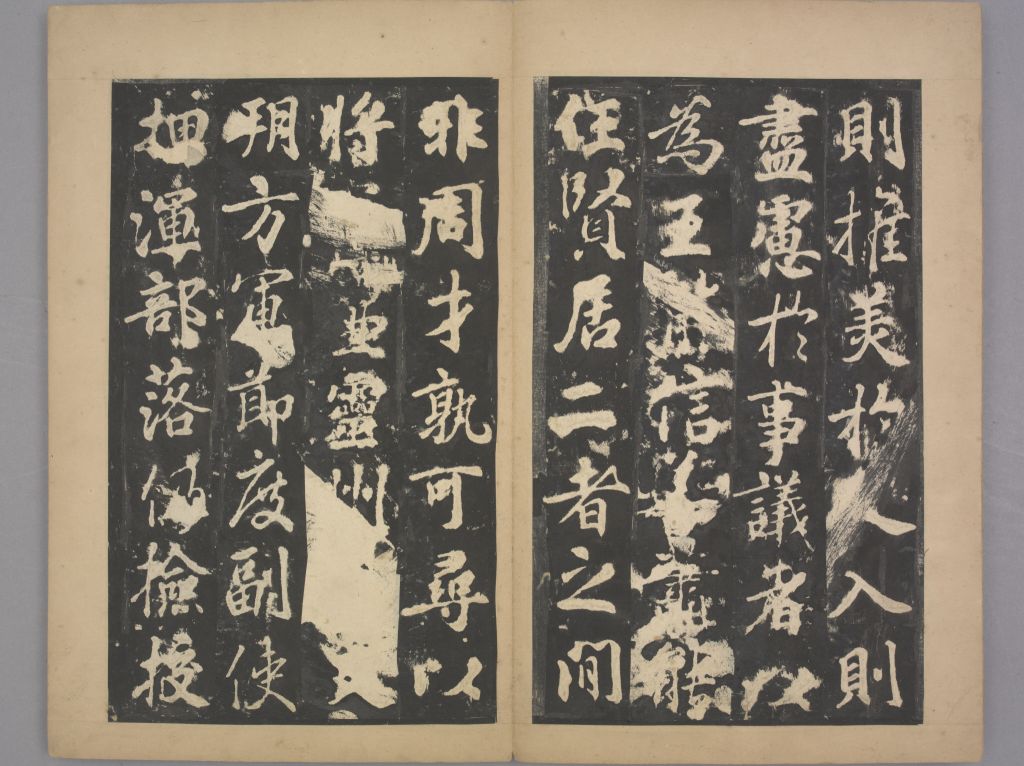 則推美於人入則
盡慮於事議者以
為王信能
任賢居二者之間
非周才孰可尋以
將靈州
朔方軍節度副使
押渾部落仍檢挍